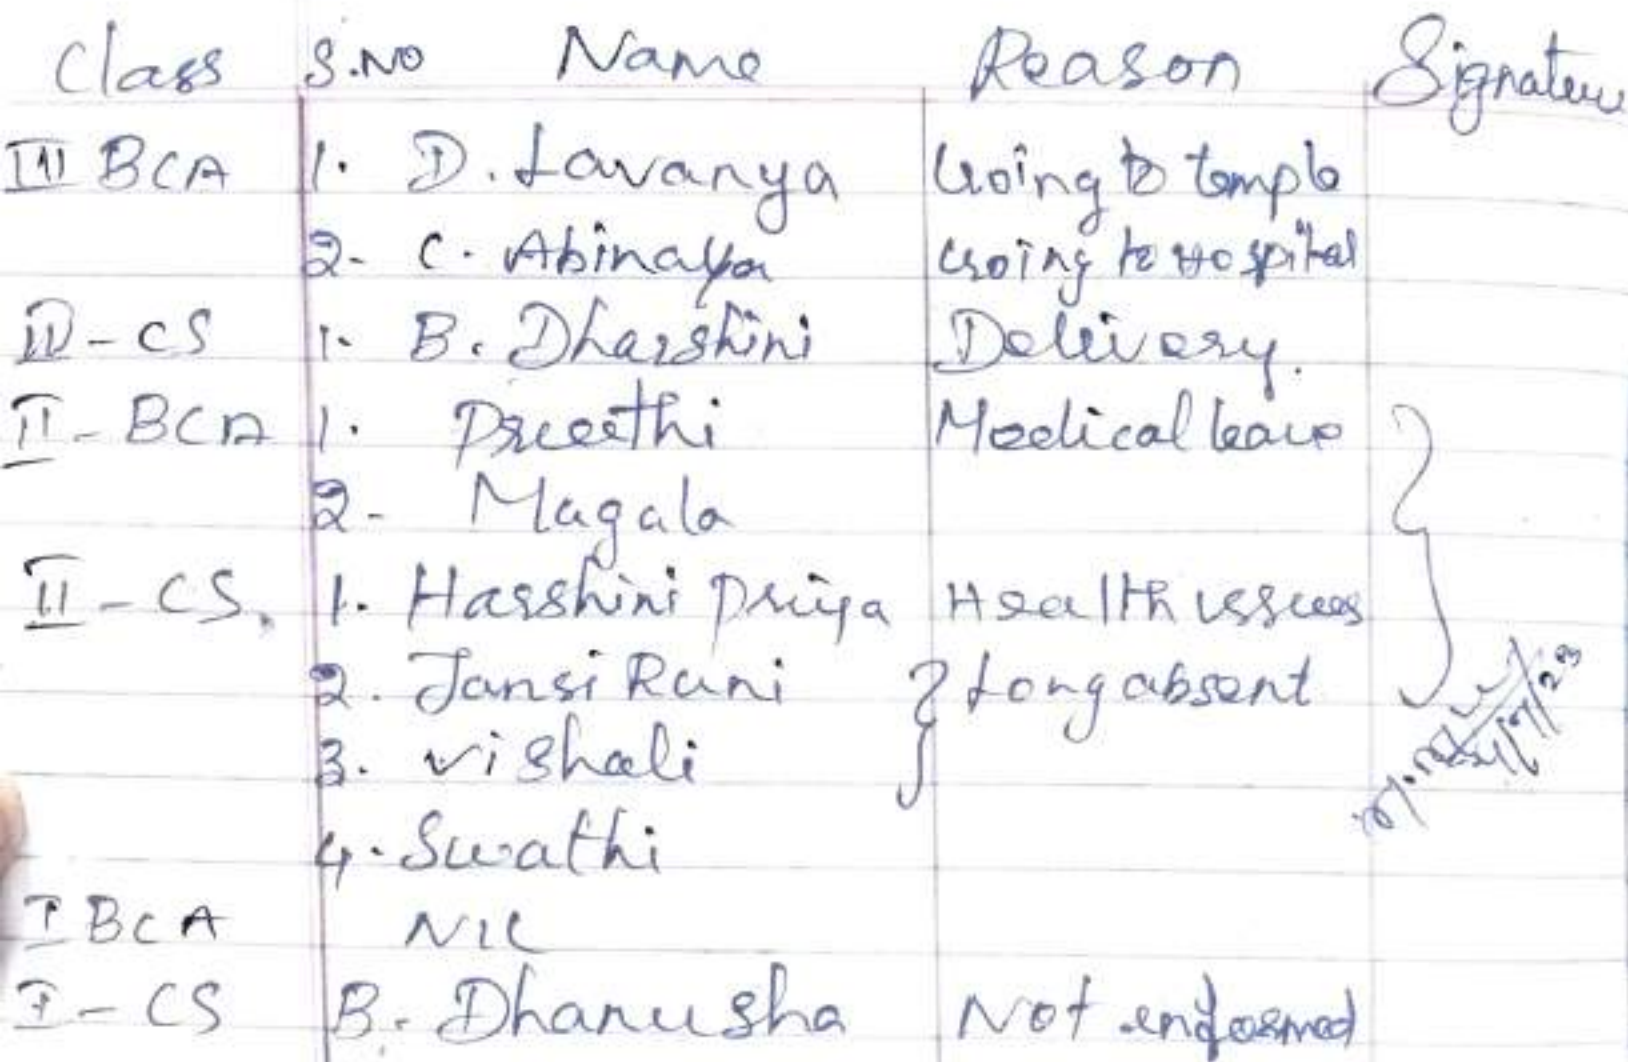 Class S.NO Name Reason Signature
III BCA 1. D. Lavanya Going to temple
2- C. Abinaya Going to Hospital
III - CS 1. B. Dharshini Delivery.
II - BCA 1. Preethi Medical leave
2- Magala
II - CS. 1. Harshini priya Health issues
2. Jansi Rani } Long absent
3. vishali
4. Swathi
I BCA NIL
I - CS B. Dhanusha Not enformed